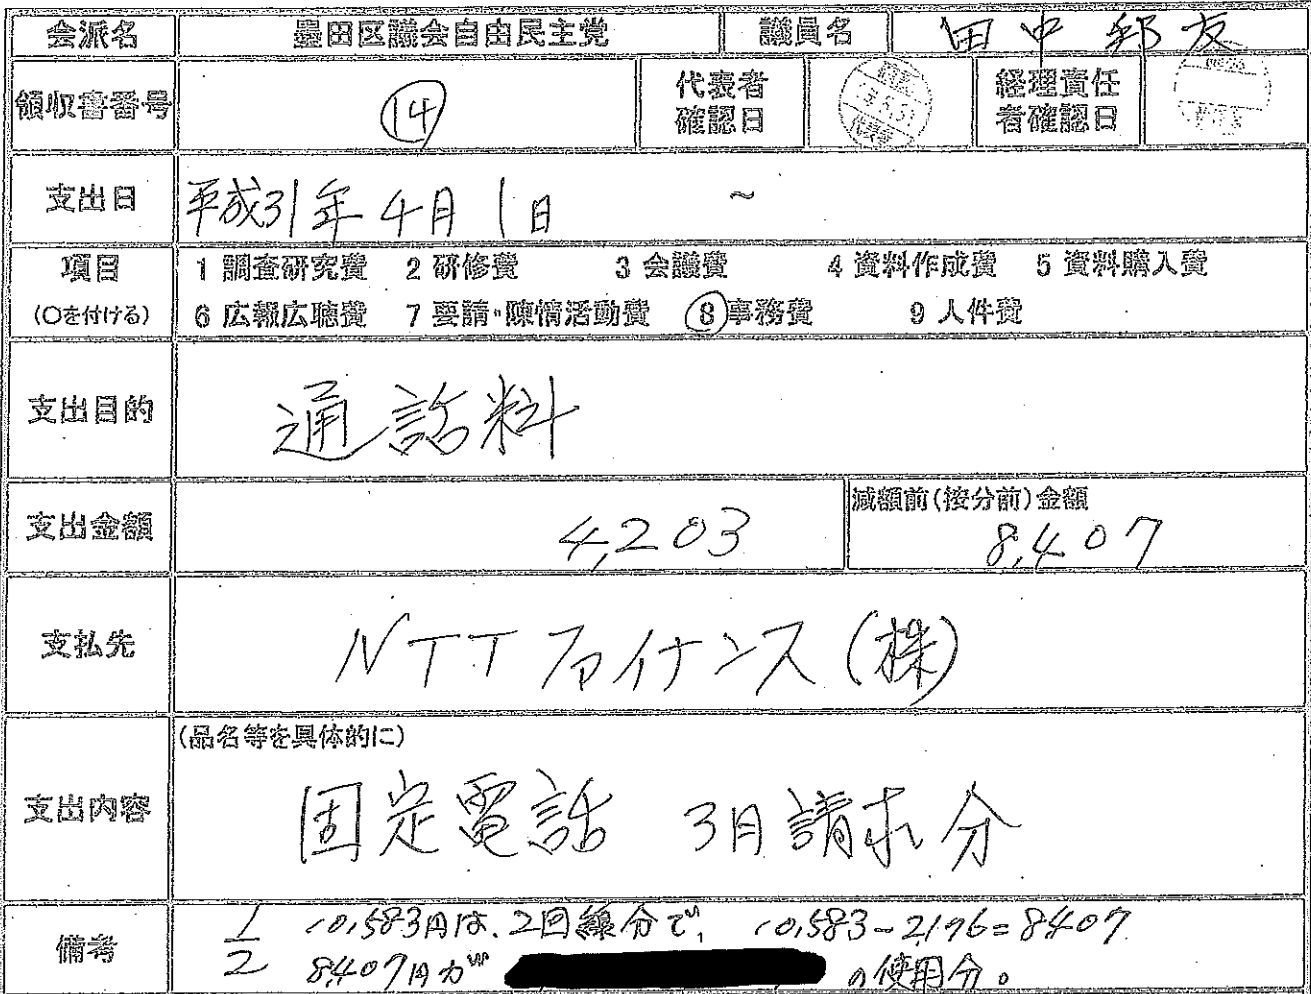 会派名 墨田区議会自由民主党 議員名 田中邦友
領収書番号 14 代表者確認日 経理責任者確認日
支出日 平成31年4月1日 ~
項目 1 調査研究費 2 研修費 3 会議費 4 資料作成費 5 資料購入費
(○を付ける) 6 広報広聴費 7 要請・陳情活動費 8 事務費 9 人件費
支出目的 通話料
減額前(按分前)金額
支出金額 4,203 8,407
支払先 NTTファイナンス(株)
(品名等を具体的に)
支出内容 固定電話 3月請求分
備考 1/2 10,583円は、2回線分で、 10,583-2,176=8407
8,407円が の使用分。